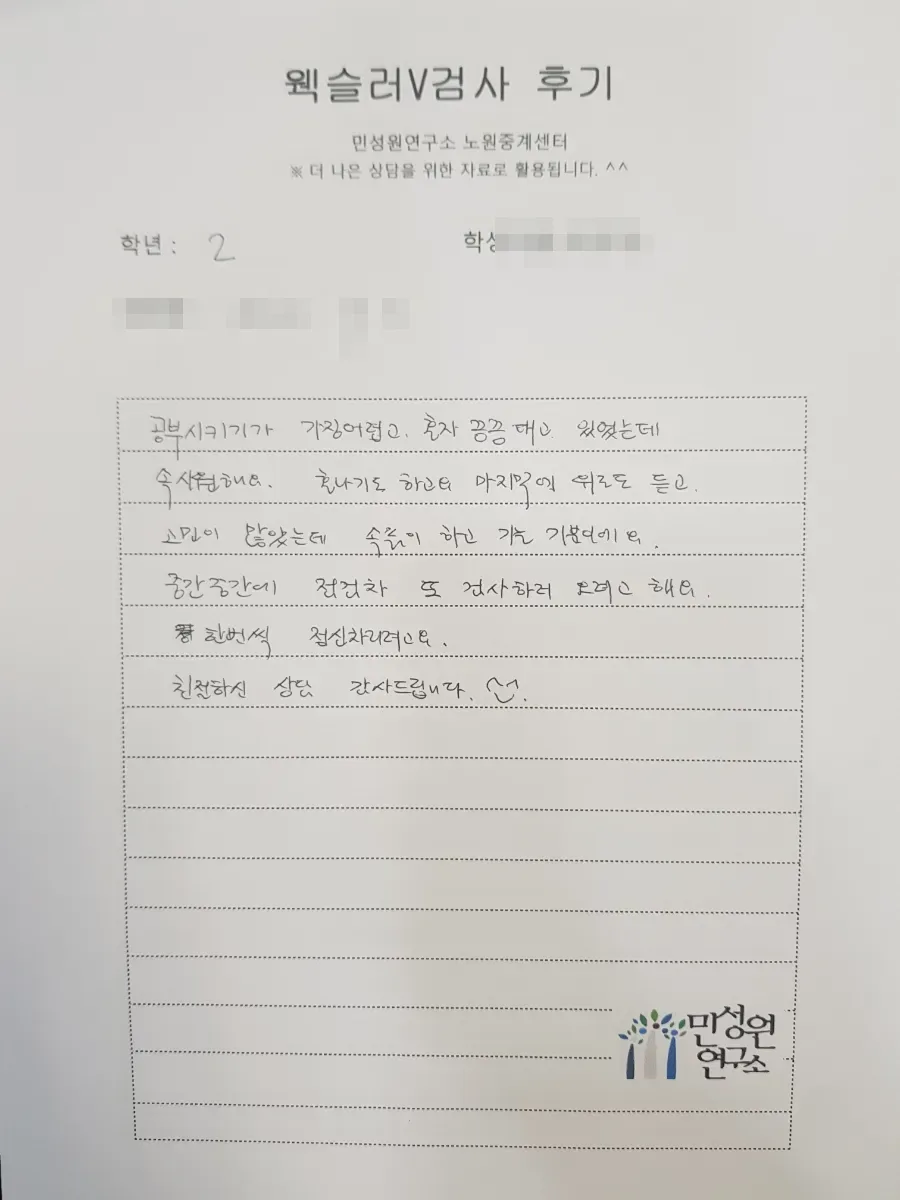 웩슬러V검사 후기
민성원연구소 노원중계센터
※ 더 나은 상담을 위한 자료로 활용됩니다. ^^
학년 : 2
공부시키기가 가장어렵고, 혼자 끙끙대고 있었는데
속시원해요. 혼나기도 하고요 마지막에 위로도 듣고.
고민이 많았는데 속풀이 하고 가는 기분이에요.
중간중간에 점검차 또 검사하러 오려고 해요.
한번씩 정신차리려고요.
친절하신 상담 감사드립니다.
민성원
연구소